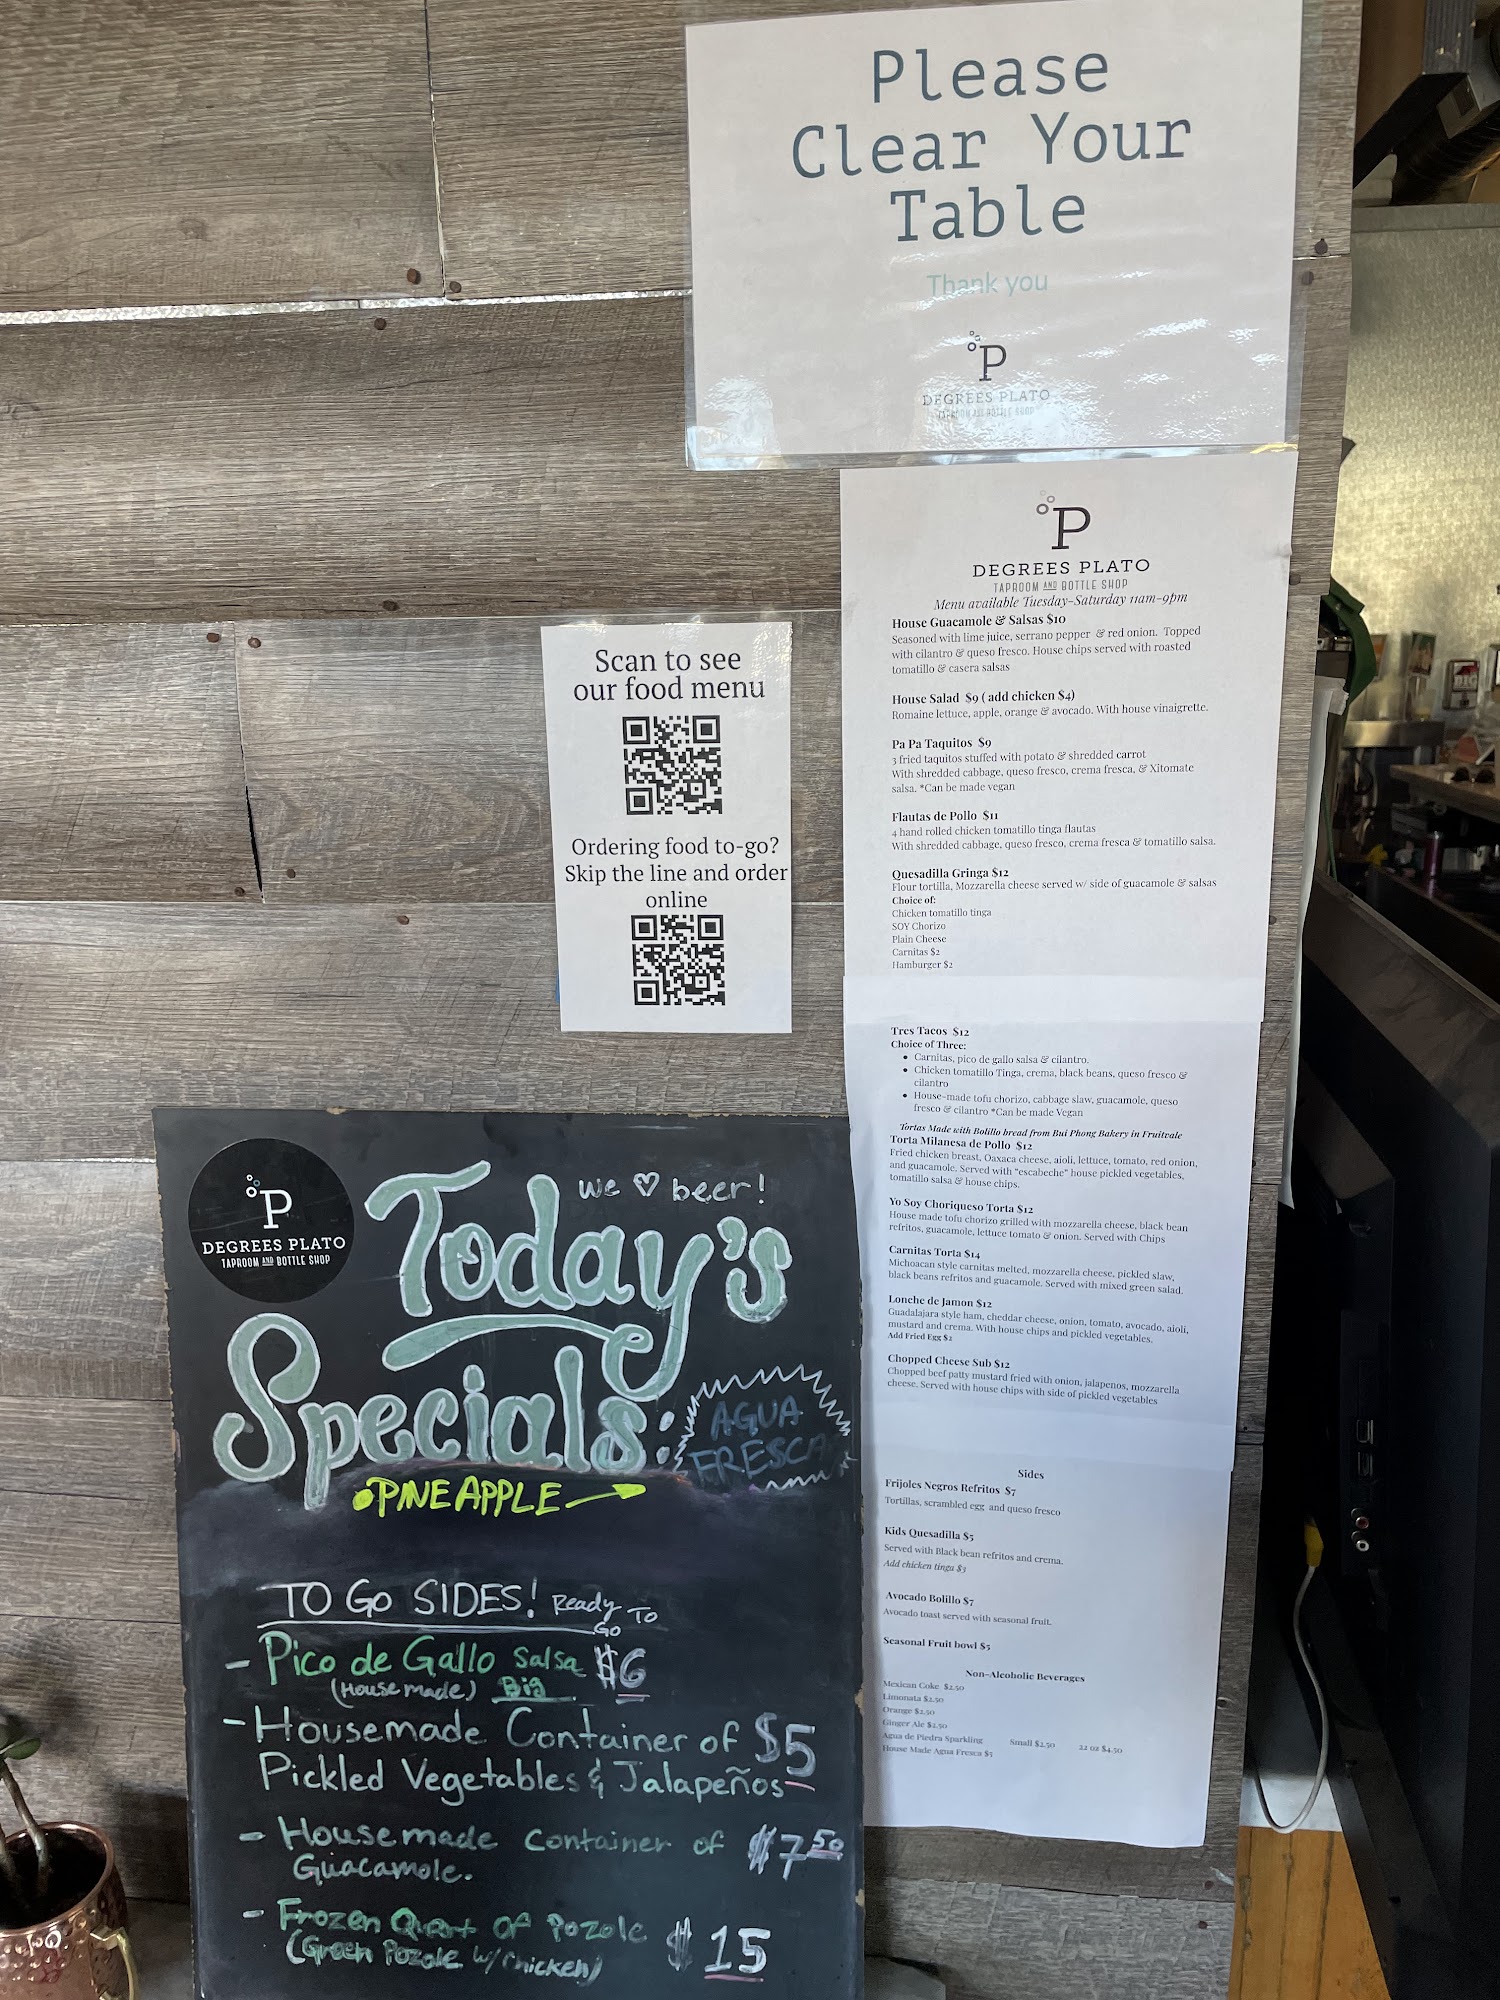 Please
Clear Your
Table
Thank you
P
DEGREES PLATO
TAPROOM AND BOTTLE SHOP
P
DEGREES PLATO
TAPROOM AND BOTTLE SHOP
Menu available Tuesday–Saturday 11am–9pm
House Guacamole & Salsas $10
Seasoned with lime juice, serrano pepper & red onion. Topped
with cilantro & queso fresco. House chips served with roasted
tomatillo & casera salsas
House Salad $9 ( add chicken $4)
Romaine lettuce, apple, orange & avocado. With house vinaigrette.
Pa Pa Taquitos $9
3 fried taquitos stuffed with potato & shredded carrot
With shredded cabbage, queso fresco, crema fresca, & Xitomate
salsa. *Can be made vegan
Flautas de Pollo $11
4 hand rolled chicken tomatillo tinga flautas
With shredded cabbage, queso fresco, crema fresca & tomatillo salsa.
Quesadilla Gringa $12
Flour tortilla, Mozzarella cheese served w/ side of guacamole & salsas
Choice of:
Chicken tomatillo tinga
SOY Chorizo
Plain Cheese
Carnitas $2
Hamburger $2
Tres Tacos $12
Choice of Three:
• Carnitas, pico de gallo salsa & cilantro.
• Chicken tomatillo Tinga, crema, black beans, queso fresco &
cilantro
• House-made tofu chorizo, cabbage slaw, guacamole, queso
fresco & cilantro *Can be made Vegan
Tortas Made with Bolillo bread from Bui Phong Bakery in Fruitvale
Torta Milanesa de Pollo $12
Fried chicken breast, Oaxaca cheese, aioli, lettuce, tomato, red onion,
and guacamole. Served with "escabeche" house pickled vegetables,
tomatillo salsa & house chips.
Yo Soy Choriqueso Torta $12
House made tofu chorizo grilled with mozzarella cheese, black bean
refritos, guacamole, lettuce tomato & onion. Served with Chips
Carnitas Torta $14
Michoacan style carnitas melted, mozzarella cheese, pickled slaw,
black beans refritos and guacamole. Served with mixed green salad.
Lonche de Jamon $12
Guadalajara style ham, cheddar cheese, onion, tomato, avocado, aioli,
mustard and crema. With house chips and pickled vegetables.
Add Fried Egg $2
Chopped Cheese Sub $12
Chopped beef patty mustard fried with onion, jalapenos, mozzarella
cheese. Served with house chips with side of pickled vegetables
Sides
Frijoles Negros Refritos $7
Tortillas, scrambled egg and queso fresco
Kids Quesadilla $5
Served with Black bean refritos and crema.
Add chicken tinga $3
Avocado Bolillo $7
Avocado toast served with seasonal fruit.
Seasonal Fruit bowl $5
Non-Alcoholic Beverages
Mexican Coke $2.50
Limonata $2.50
Orange $2.50
Ginger Ale $2.50
Agua de Piedra Sparkling Small $2.50 22 oz $4.50
House Made Agua Fresca $5
Scan to see
our food menu
Ordering food to-go?
Skip the line and order
online
P
DEGREES PLATO
TAPROOM AND BOTTLE SHOP
we ♡ beer!
Today's
Specials:
AGUA
FRESCA
• PINEAPPLE →
TO GO SIDES! Ready To
Go
- Pico de Gallo Salsa $6
(House made) Big
- Housemade Container of $5
Pickled Vegetables & Jalapeños
- Housemade Container of $7 50
Guacamole.
- Frozen Quart of Pozole $15
(Green Pozole w/Chicken)